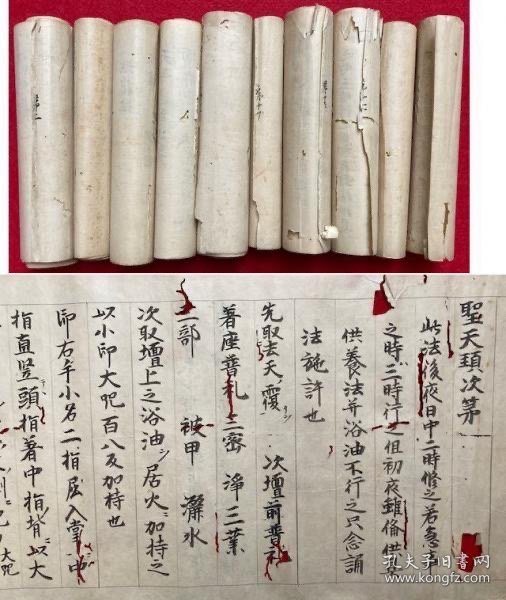 聖天頚次第
此法後夜日中二時修之若急
之時三時行之但初夜雖備供
供養法并浴油不行之只念誦
法施許也
先取去天覆 次壇前普礼
著座普礼 三密 淨三業
三部 被甲 灑水
次取壇上之浴油ヲ居火ニ加持之
以小印大呪百八反加持也
印右手小名二指屈入掌中
指直竪頭指著中指背以大
大呪
孔夫子旧书网
www.kongfz.com